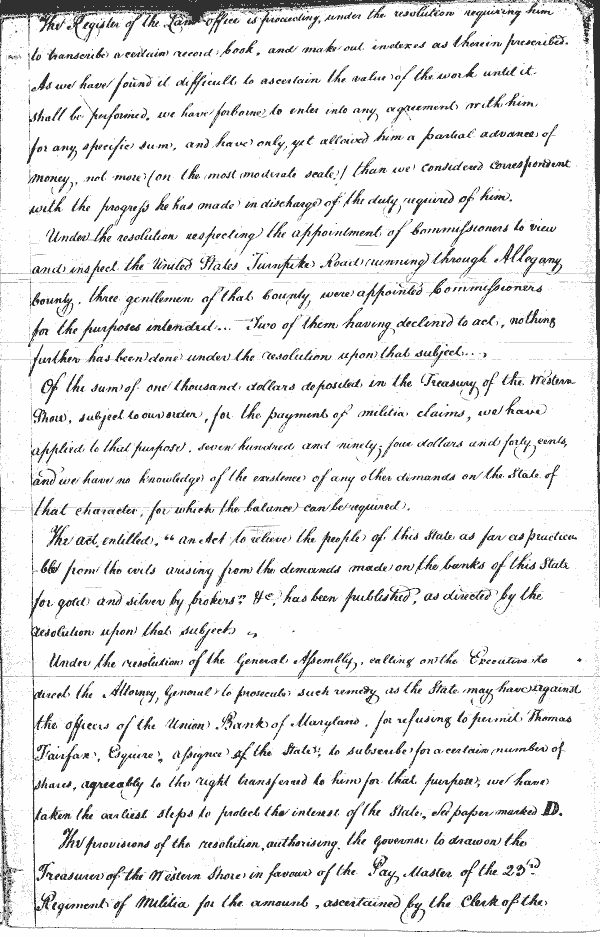 The Register of the Land office is proceeding, under the resolution requiring him
to transcribe a certain record book, and make out indexes as therein prescribed.
As we have found it difficult to ascertain the value of the work until it
shall be performed, we have forborne to enter into any agreement with him
for any specific sum, and have only yet allowed him a partial advance of
money, not more (on the most moderate scale) than we considered correspondent
with the progress he has made in discharge of the duty required of him.
Under the resolution respecting the appointment of Commissioners to view
and inspect the United States Turnpike Road running through Allegany
County, three gentlemen of that County, were appointed Commissioners
for the purposes intended... Two of them having declined to act, nothing
further has been done under the resolution upon that subject...,
Of the sum of one thousand dollars deposited in the Treasury of the Western
Shore, subject to our order, for the payment of militia claims, we have
applied to that purpose, seven hundred and ninety-four dollars and forty cents,
and we have no knowledge of the existence of any other demands on the State of
that character, for which the balance can be required.
The act, entitled, "an Act to relieve the people of this State as far as practica
ble from the evils arising from the demands made on the banks of this State
for gold and silver by brokers," &c, has been published, as directed by the
resolution upon that subject.
Under the resolution of the General Assembly, calling on the Executive to
direct the Attorney General to prosecute such remedy as the State may have against
the officers of the Union Bank of Maryland, for refusing to permit Thomas
Fairfax, Esquire, assignee of the State, to subscribe for a certain number of
shares, agreeably to the right transferred to him for that purpose, we have
taken the earliest steps to protect the interest of the State. See paper marked D.
The provisions of the resolution, authorising the Governor to draw on the
Treasurer of the Western Shore in favour of the Pay Master of the 23rd
Regiment of Militia for the amount, ascertained by the Clerk of the